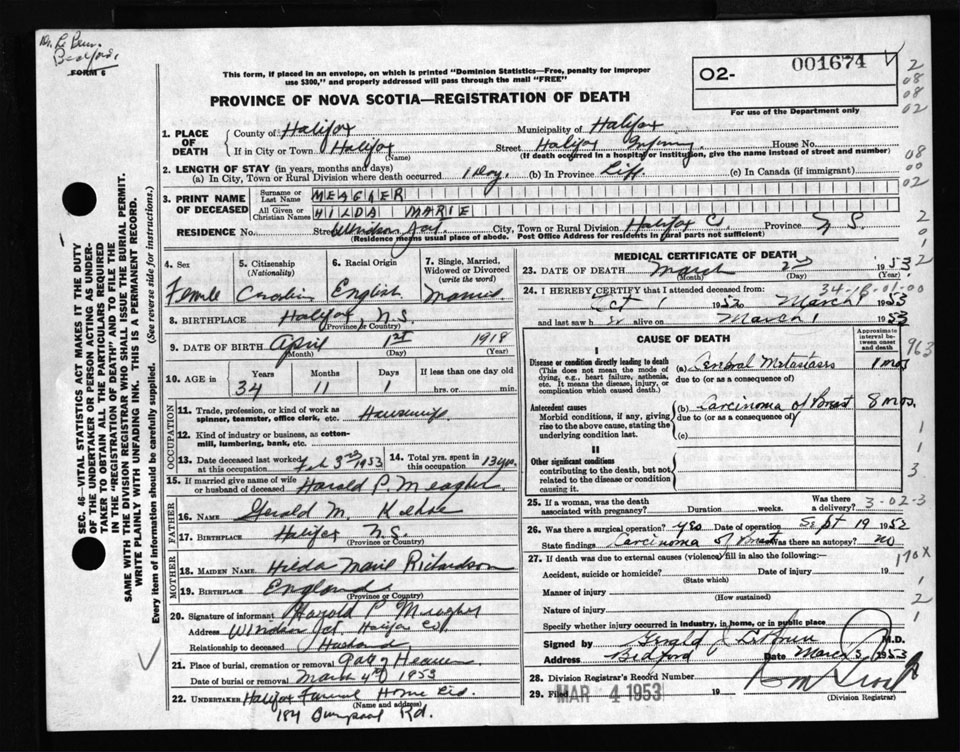 Bedford.
FORM 6
This form, if placed in an envelope, on which is printed "Dominion Statistics—Free, penalty for improper
use $300," and properly addressed will pass through the mail "FREE"
O2- 001674
For use of the Department only
PROVINCE OF NOVA SCOTIA—REGISTRATION OF DEATH
2
08
08
02
08
00
02
2
0
1
2
1. PLACE OF DEATH
County of Halifax Municipality of Halifax
If in City or Town Halifax (Name) Street Halifax Infirmary House No.
(If death occurred in a hospital or institution, give the name instead of street and number)
2. LENGTH OF STAY (in years, months and days)
(a) In City, Town or Rural Division where death occurred 1 Day. (b) In Province Life (c) In Canada (if immigrant)
3. PRINT NAME OF DECEASED
Surname or Last Name MEAGHER
All Given or Christian Names HILDA MARIE
RESIDENCE No. Street Windsor Jct. City, Town or Rural Division Halifax Co. Province N.S.
(Residence means usual place of abode. Post Office Address for residents in rural parts not sufficient)
4. Sex Female
5. Citizenship (Nationality) Canadian
6. Racial Origin English
7. Single, Married, Widowed or Divorced (write the word) Married
8. BIRTHPLACE Halifax, N.S.
(Province or Country)
9. DATE OF BIRTH April 1st 1918
(Month) (Day) (Year)
10. AGE in Years Months Days If less than one day old
34 11 1 hrs. or min.
OCCUPATION
11. Trade, profession, or kind of work as spinner, teamster, office clerk, etc. Housewife
12. Kind of industry or business, as cotton-mill, lumbering, bank, etc.
13. Date deceased last worked at this occupation Feb 3rd 1953
14. Total yrs. spent in this occupation 13 yrs.
15. If married give name of wife or husband of deceased Harold P. Meagher
FATHER
16. Name Gerald M.
17. Birthplace Halifax N.S.
(Province or Country)
MOTHER
18. Maiden Name Hilda Marie Richardson
19. Birthplace England
(Province or Country)
20. Signature of informant Harold P. Meagher
Address Windsor Jct. Halifax Co.
Relationship to deceased Husband
21. Place of burial, cremation or removal Gate of Heaven
Date of burial or removal March 4th 1953
22. Undertaker Halifax Funeral Home Ltd.
(Name and address)
184 Rd.
MEDICAL CERTIFICATE OF DEATH
23. DATE OF DEATH March 2nd 1953
(Month) (Day) (Year)
34-18-01-00
24. I HEREBY CERTIFY that I attended deceased from:
Oct 1 1952 to March 1 1953
and last saw her alive on March 1 1953
CAUSE OF DEATH
Approximate interval between onset and death
963
I
Disease or condition directly leading to death
(This does not mean the mode of dying, e.g., heart failure, asthenia, etc. It means the disease, injury, or complication which caused death.)
(a) Cerebral Metastases 1 mos
due to (or as a consequence of)
Antecedent causes
Morbid conditions, if any, giving rise to the above cause, stating the underlying condition last.
(b) Carcinoma of Breast 8 mos.
due to (or as a consequence of)
(c)
II
Other significant conditions
contributing to the death, but not related to the disease or condition causing it.
1
3
25. If a woman, was the death associated with pregnancy? Duration weeks. Was there a delivery?
3-02-3
26. Was there a surgical operation? yes Date of operation Sept 19 1952
State findings Carcinoma of Breast Was there an autopsy? no
27. If death was due to external causes (violence) fill in also the following:
170X
Accident, suicide or homicide? Date of injury 19
(State which)
Manner of injury
(How sustained)
Nature of injury
Specify whether injury occurred in industry, in home, or in public place
1
2
1
Signed by Gerald J. LeBrun M.D.
Address Bedford Date March 3, 1953
28. Division Registrar's Record Number
29. Filed MAR 4 1953 19
(Division Registrar)
SEC. 46—VITAL STATISTICS ACT MAKES IT THE DUTY
OF THE UNDERTAKER OR PERSON ACTING AS UNDER-
TAKER TO OBTAIN ALL THE PARTICULARS REQUIRED
IN THE "REGISTRATION OF DEATH" AND TO FILE THE
SAME WITH THE DIVISION REGISTRAR WHO SHALL ISSUE THE BURIAL PERMIT.
WRITE PLAINLY WITH UNFADING INK. THIS IS A PERMANENT RECORD.
Every item of Information should be carefully supplied. (See reverse side for instructions.)